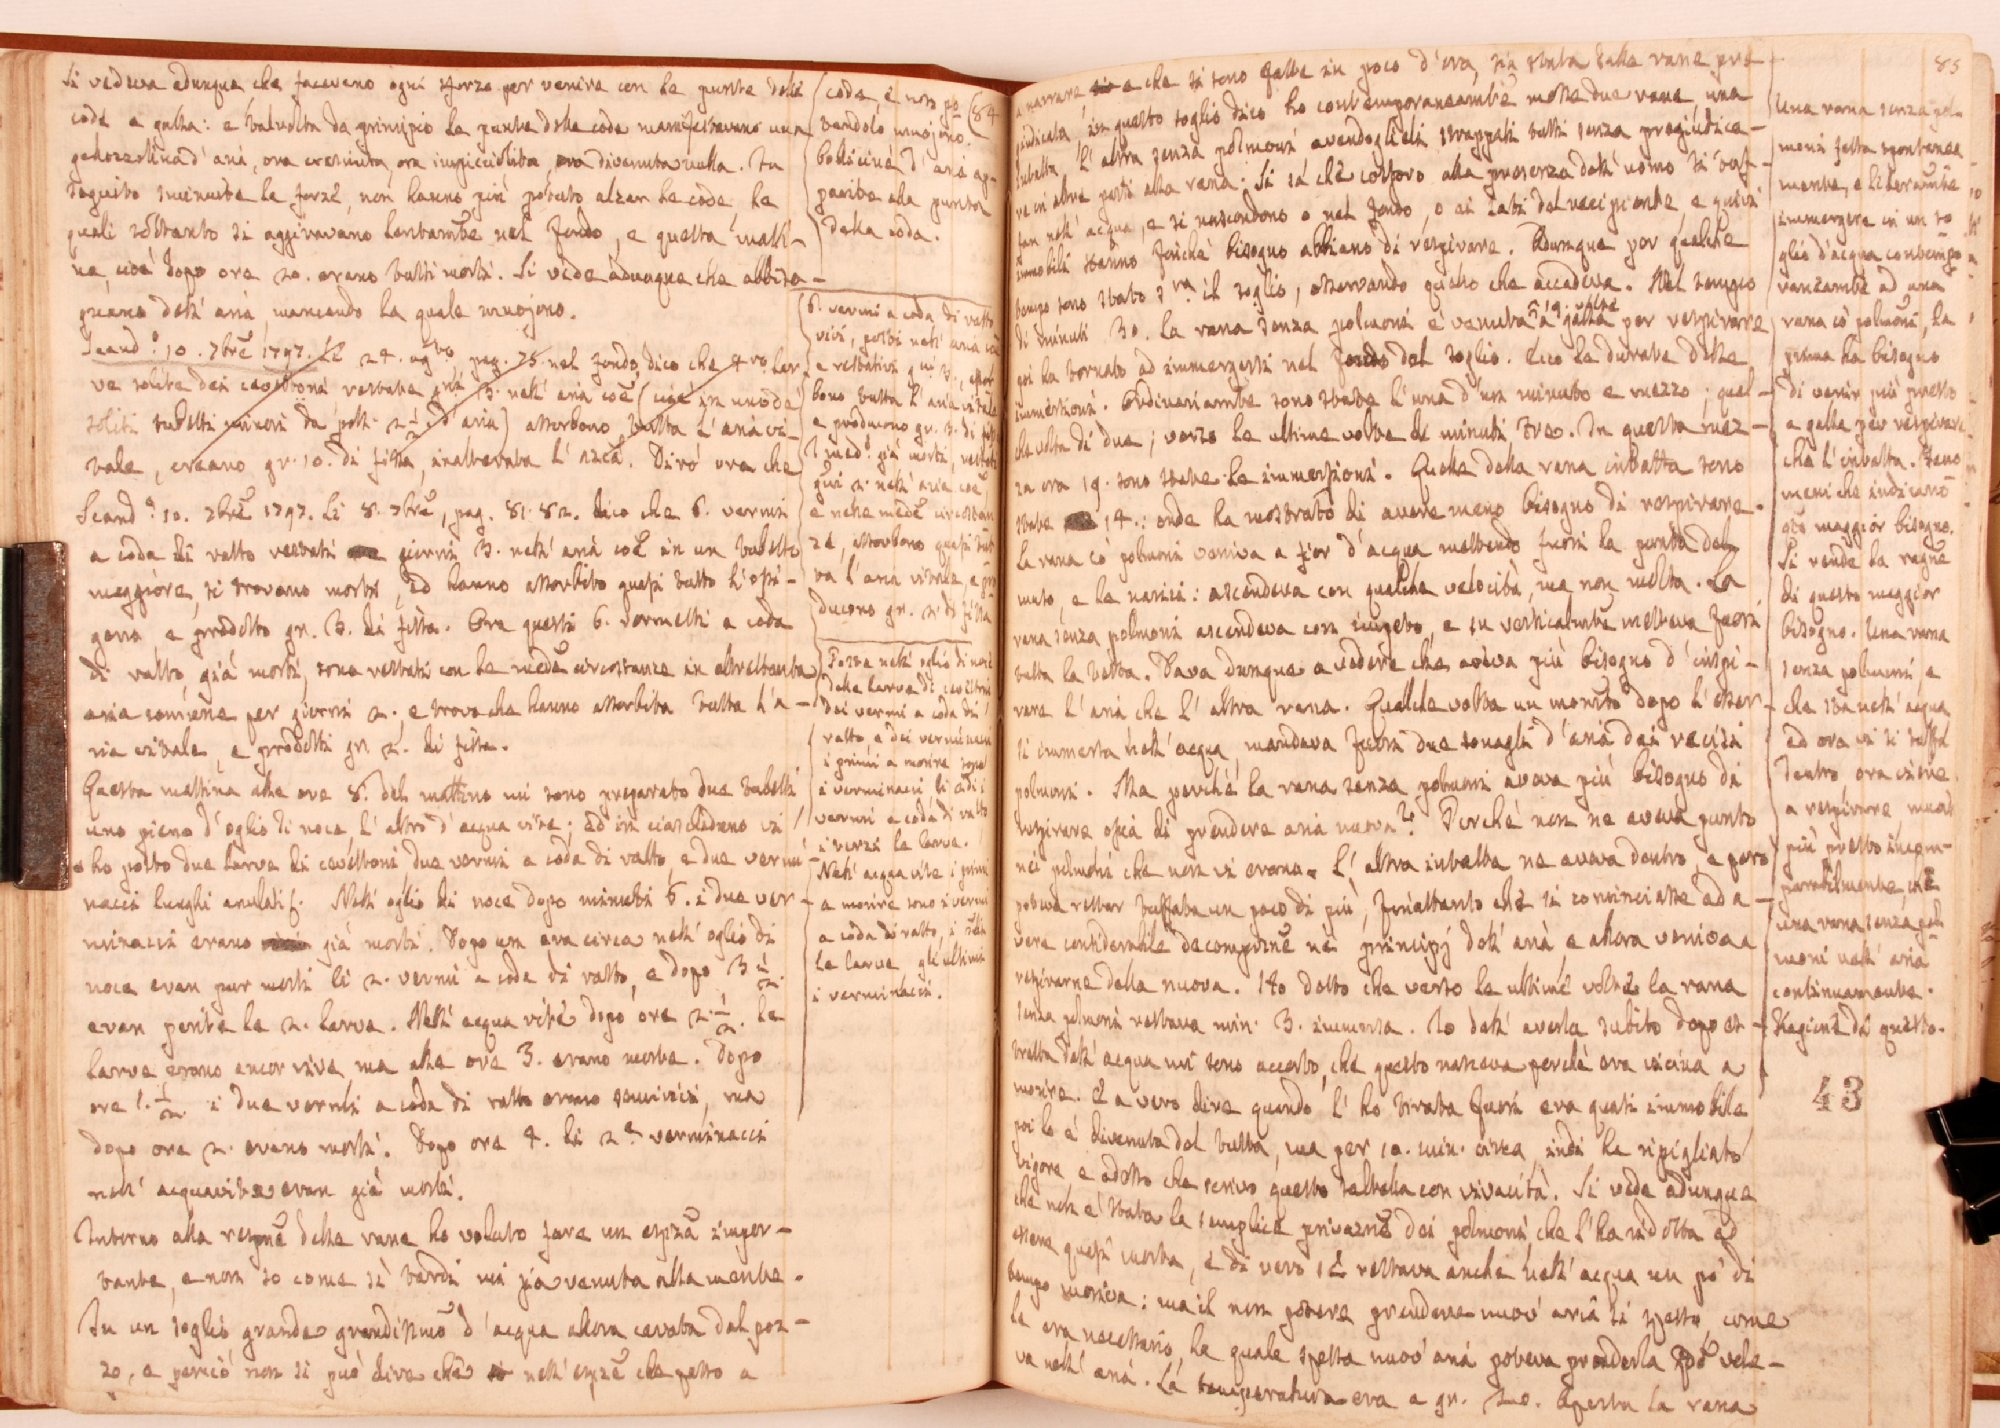 Si vedeva adunque che facevano ogni sforzo per venire con le punte delle
code a galla: e talvolta da principio le punte delle code manifestavano una
gallozzolina d'aria, ora cresciuta, ora impicciolita, ora divenuta nulla. In
seguito sminuite le forze, non hanno più potuto alzar le code, le
quali soltanto si aggiravano lentamte nel fondo, e questa matti-
na, cioè dopo ore 20. erano tutti morti. Si vede adunque che abbiso-
gnano dell'aria, mancando la quale muojono.
Scand.o 10. 7bre 1797. Li 24. agto pag. 75. nel fondo dico che 4ro lar-
ve solite dei cavettoni restate gni 3. nell'aria coe (cioè in uno de'
soliti tubetti minori da poll. 2 1/2 d'aria) assorbono tutta l'aria vi-
tale, creano gr. 10. di fissa, inalterata l'
Dirò ora che
Scand.o 10. 7bre 1797. Li 8. 7bre, pag. 81. 82. dico che 6. vermi
a coda di ratto restati giorni 3. nell'aria coe in un tubetto
maggiore, si trovano morti, ed hanno assorbito quasi tutto l'ossi-
geno e prodotto gr. 3. di fissa. Ora questi 6. vermetti a coda
di ratto già morti, sono restati con le mede circostanze in altrettanta
aria comune per giorni 2. e trovo che hanno assorbita tutta l'a-
ria vitale, e prodotti gr. 2. di fissa.
Questa mattina alle ore 8. del mattino mi sono preparato due tubetti
uno pieno d'oglio di noce, l'altro d'acqua vite; ed in ciascheduno vi
ho posto due larve di cavettoni, due vermi a coda di ratto, e due vermi-
nacci lunghi anulati f. Nell'oglio di noce dopo minuti 6. i due ver-
minacci erano già morti. Dopo un ora circa nell'oglio di
noce eran pur morti li 2. vermi a coda di ratto, e dopo 3 1/2.
eran perite le 2. larve. Nell'acqua vite dopo ore 2. 1/2. le
larve erano ancor vive, ma alle ore 3. erano morte. Dopo
ore 1. 1/2 i due vermi a coda di ratto erano semivivi, ma
dopo ore 2. erano morti. Dopo ore 4. li 2. verminacci
nell'acquavite eran già morti.
Intorno alla respne delle rane ho voluto fare un espza impor-
tante, e non so come sì tardi mi sia venuta alla mente.
In un soglio grande grandissimo d'acqua allora cavata dal poz-
zo, e perciò non si può dire che nell'espze che passo a
84
code, e non po-
tendolo muojono.
Bollicine d'aria ap-
parite alla punta
della coda.
6. vermi a coda di ratto
vivi, posti nell'aria coe
e restativi gni 3., assor-
bono tutta l'aria vitale
e producono gr. 3. di fissa
I medi già morti, restati
gni 2. nell'aria coe,
e nelle mede circostan-
ze, assorbono quasi tut-
ta l'aria vitale, e pro-
ducono gr. 2. di fissa
Poste nell'oglio di noce
delle larve di cavettoni
dei vermi a coda di
ratto e dei verminacci
i primi a morire sono
i verminacci li 2di i
vermi a coda di ratto
i terzi le larve.
Nell'acqua vite i primi
a morire sono i vermi
a coda di ratto, i sdi
le larve, gli ultimi
i verminacci.
85
a narrare e che si sono fatte in poco d'ora, sia stata dalle rane pre-
giudicata in questo soglio dico ho contemporaneamte messe due rane, una
intatta l'altra senza polmoni avendoglieli strappati tutti senza pregiudica-
re in altre parti alla rana. Si sà che costoro alla presenza dell'uomo si tuf-
fan nell'acqua, e si nascondono o nel fondo, o ai lati del recipiente, e quivi
immobili stanno finchè bisogno abbiano di respirare. Adunque per qualche
tempo sono stato sra il soglio, osservando quello che accadeva. Nel tempo
di minuti 30. la rana senza polmoni è venuta a galla 19. volte per respirare
poi ha tornato ad immergersi nel fondo del soglio. Ecco le durate delle
immersioni. Ordinariamte sono state l'una d'un minuto e mezzo; qual-
che volta di due; verso le ultime volte di minuti tre. In questa mez-
za ora 19. sono state le immersioni. Quelle della rana intatta sono
state 14.: onde ha mostrato di avere meno bisogno di respirare.
La rana co' polmoni veniva a fior d'acqua mettendo fuori la punta del
muso, e le narici: ascendeva con qualche velocità, ma non molta. La
rana senza polmoni ascendeva con impeto, e su verticalmte metteva fuori
tutta la testa. Dava dunque a vedere che aveva più bisogno d'inspi-
rare l'aria che l'altra rana. Qualche volta un momento dopo l'esser-
si immersa nell'acqua, mandava fuori due sonagli d'aria dai recisi
polmoni. Ma perchè la rana senza polmoni aveva più bisogno di
respirare ossia di prendere aria nuova? Perchè non ne aveva punto
nei polmoni che non vi erano. L'altra intatta ne aveva dentro, e però
poteva restar tuffata un poco di più, finattanto che si cominciasse ad a-
vere considerabile decompozne nei principj dell'aria, e allora veniva a
respirarne della nuova. Ho detto che verso le ultime volte la rana
senza polmoni restava min. 3. immersa. Io dall'averla subito dopo es-
tratta dall'acqua mi sono accorto, che questo nasceva perchè era vicina a
morire. E a vero dire quando l'ho tirata fuori era quasi immobile
poi lo è divenuta del tutto, ma per 10. min. circa, indi ha ripigliato
vigore, e adesso che scrivo questo saltella con vivacità. Si vede adunque
che non è stata la semplice privazne dei polmoni che l'ha ridotta ad
essere quasi morta, e di vero se restava anche nell'acqua un pò di
tempo moriva: ma il non potere prendere nuov'aria sì spesso, come
le era necessario, la quale spessa nuov'aria poteva prenderla se vole-
va nell'aria. La temperatura era a gr. 20. Aperta la rana
Una rana senza pol-
moni fatta spontanea-
mente, e liberamte
immergere in un so-
glio d'acqua contempo-
raneamte ad una
rana co' polmoni, la
prima ha bisogno
di venir più presto
a galla per respirare
che l'intatta. Feno-
meni che indicano
qto maggior bisogno.
Si rende la ragne
di questo maggior
bisogno. Una rana
senza polmoni, e
che sta nell'acqua
ed ora vi si tuffa
dentro ora viene
a respirare, muore
più presto incom-
parabilmente che
una rana senza pol-
moni nell'aria
continuamente.
Ragione di questo.
43